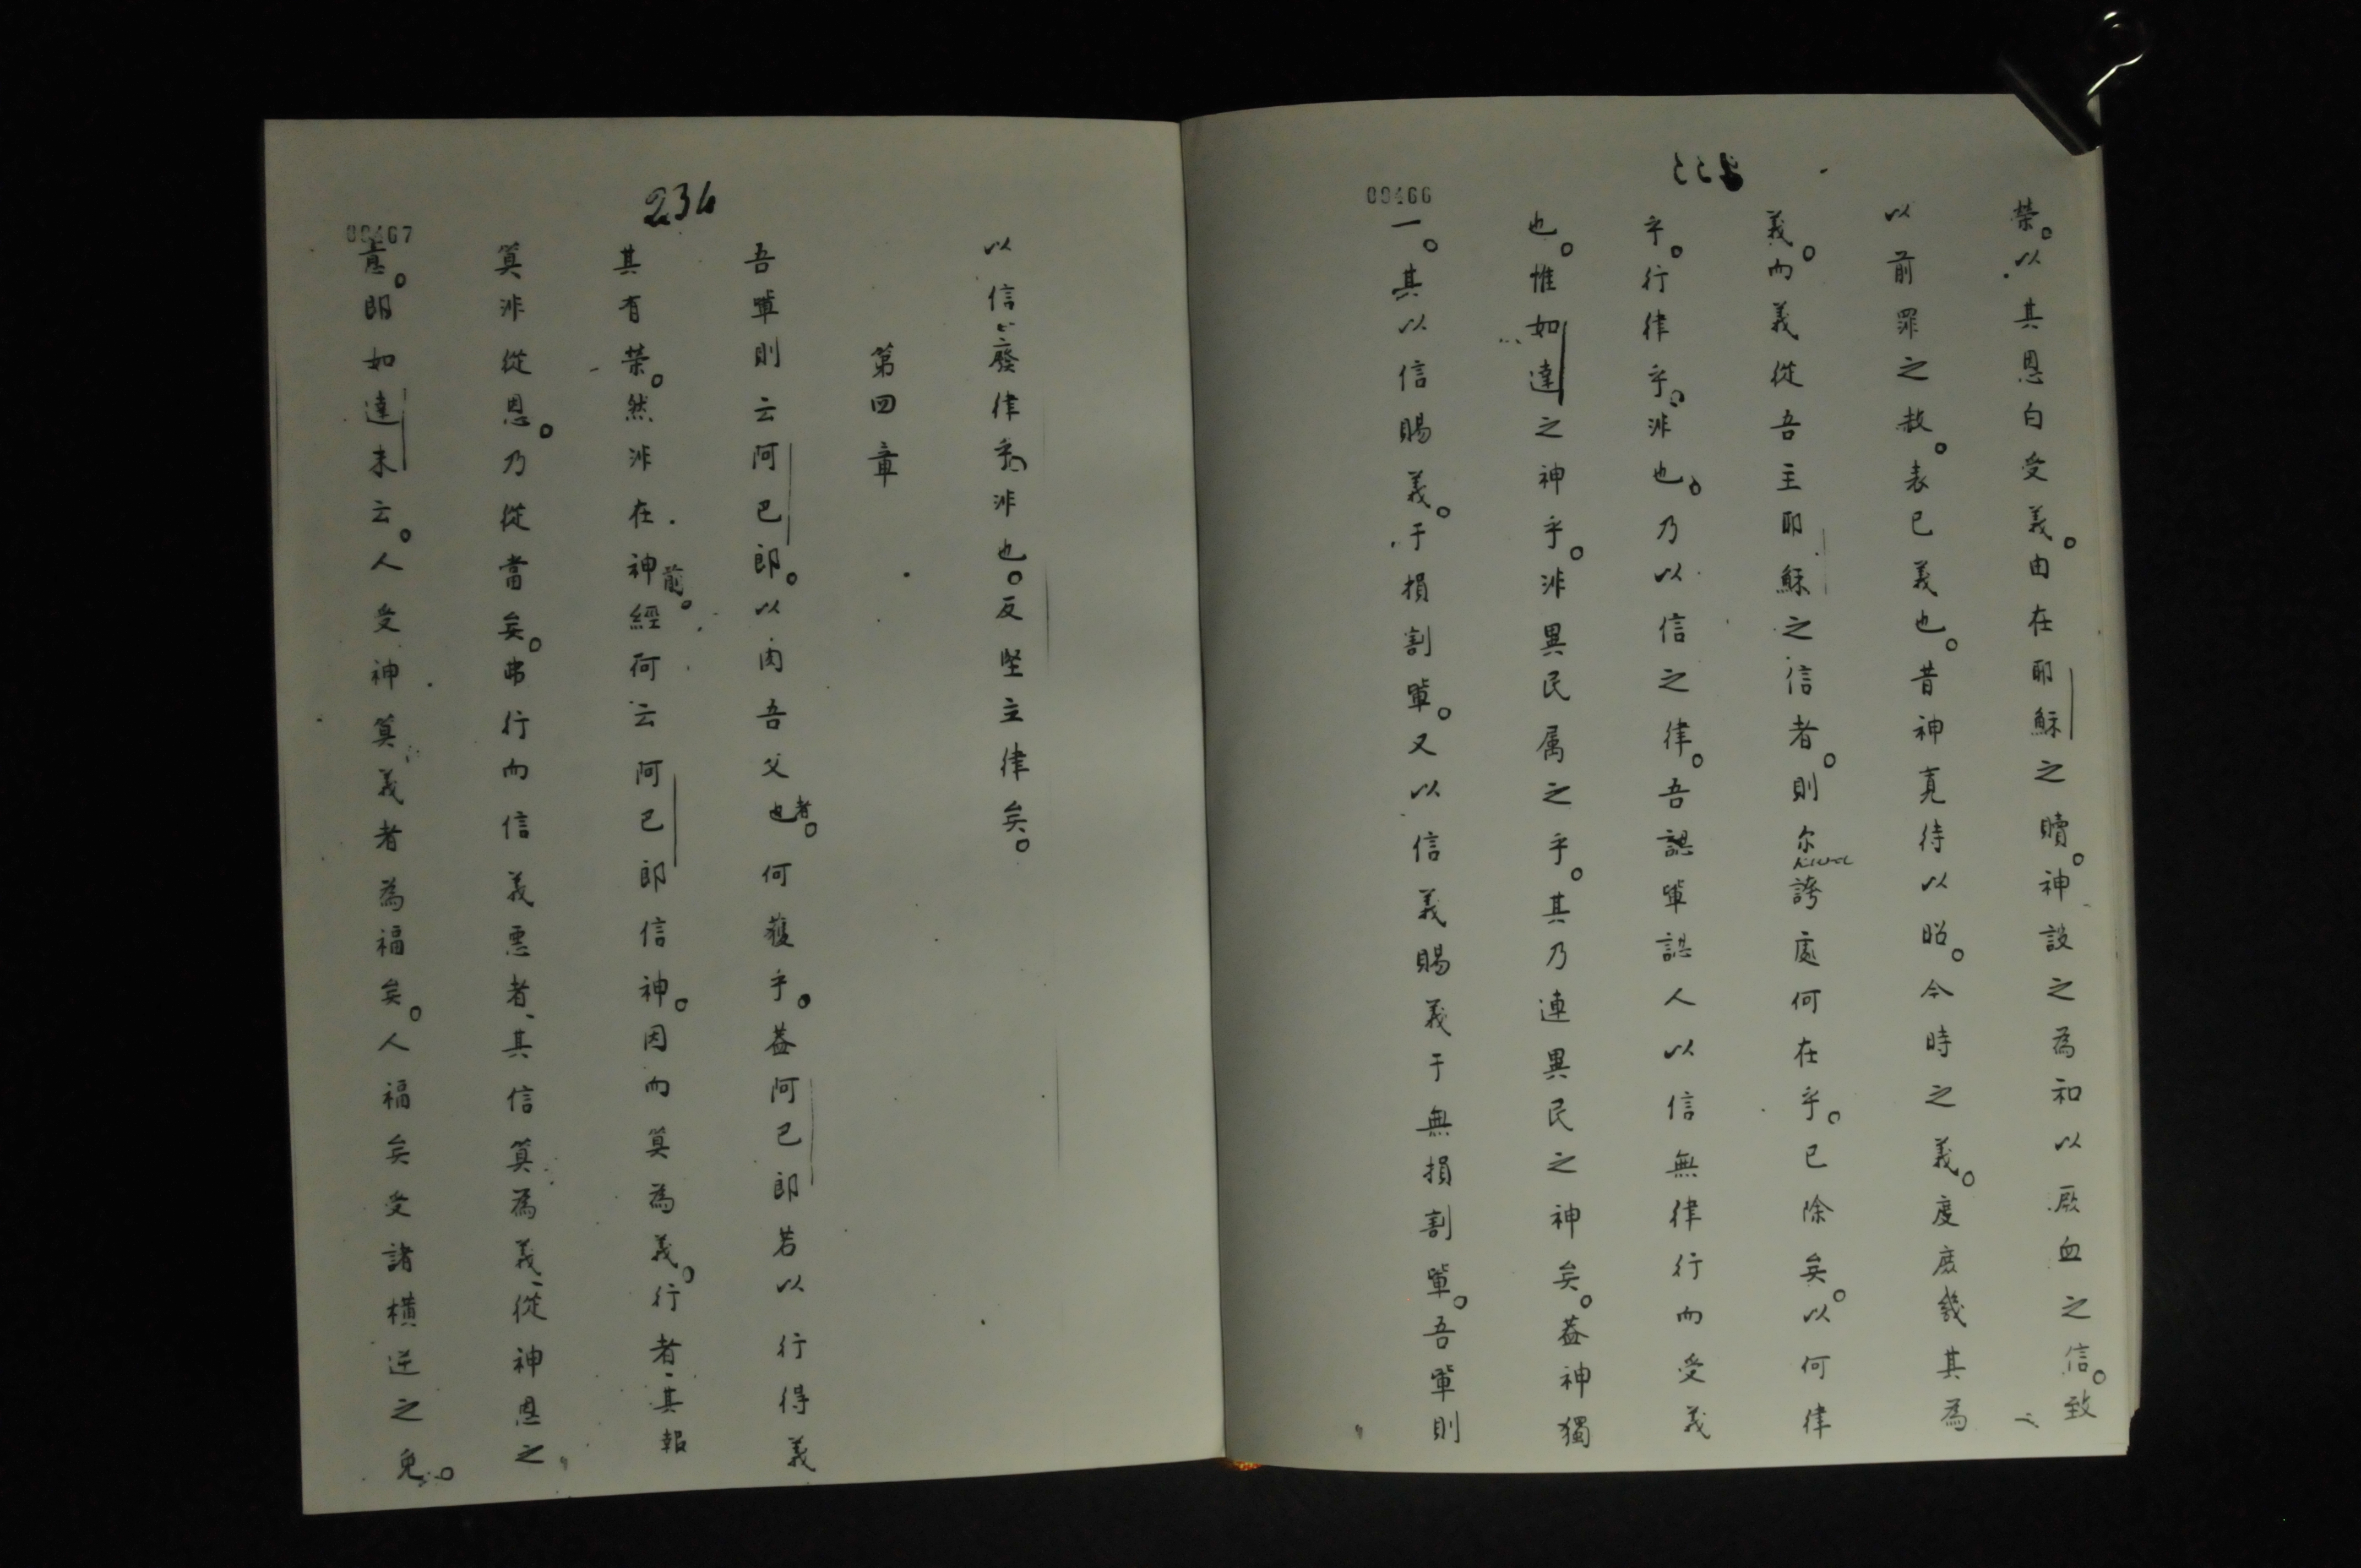 00466
榮。以其恩白受義。由在耶穌之贖。神設之為和以厥血之信。致
以前罪之赦。表已義也。昔神寬待以昭。今時之義。度庶幾其為
義。而義從吾主耶穌之信者。則尔誇處何在乎。已除矣。以何律
乎。行律乎。非也。乃以信之律。吾認輩認人以信無律行而受義
也。惟如達之神乎。非異民属之乎。其乃連異民之神矣。蓋神獨
一。其以信賜義。于損割輩。又以信義賜義于無損割輩。吾輩則
234
00467
以信廢律乎。非也。反堅主律矣。
第四章
吾輩則云阿巴郎。以肉吾父也者。何獲乎。蓋阿巴郎若以行得義
其有榮。然非在神前。經何云阿巴郎信神。因而算為義。行者、其報
算非從恩。乃從當矣。弗行而信義悪者、其信算為義、從神恩之
意。即如達未云。人受神算義者為福矣。人福矣受諸橫逆之免。